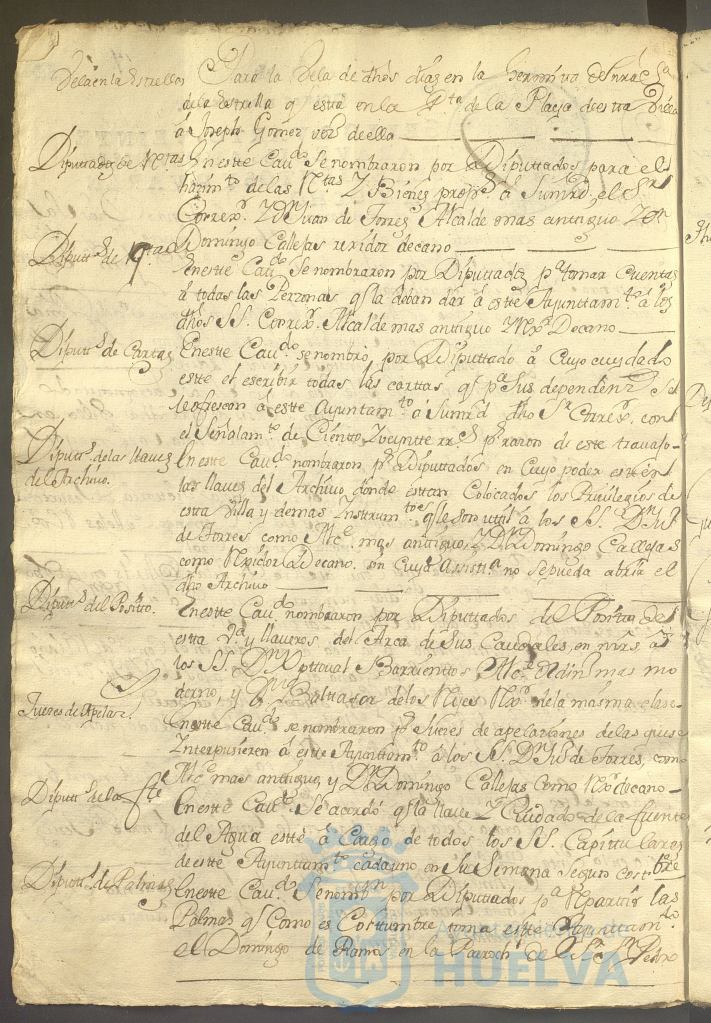 Dela en la estrella Para la dela de dhos dias en la hermitta de Nra Sa
dela estrella q esta en la Pta de la Plaza de esta Villa
á Joseph Gomez vezo de ella
Diputtados de Rentas En este Cavdo Se nombraron por Diputtados para el
hazimto delas Rtas y Bienes props á Sumrd el Sr
Correxr y Dn Juan de Torres Alcalde mas antiguo y Dn
Domingo Callejas rexidor decano
Diputts de
En este Cavdo Se nombraron por Diputtados pa tomar Cuentas
á todas las Perzonas qe la deban dar á este Ayunttamto á los
dhos SS. Correxr Alcalde mas antiguo y Rxr Decano
Diputts de Cartas En este Cavdo se nombró, por Diputtado á Cuyo cuydado
este el escribir todas las carttas, q pa Sus dependenz Se le
ofrescan á este Ayuntamto á Sumrd dho Sr Correxr con
el Señalamto de Ciento y veynte rrs pr razon de este travajo
Diputts de las llaves En este Cavdo nombraron pr Diputtados en Cuyo poder esten
del Archivo. las llaves del Archivo donde esttan Colocados los Privilegios de
esta Villa y demas Instrumtos qe le son util á los SS. Dn Jun
de Torres como Alce mas antiguo, y Dn Domingo Callejas
como Rexidor Decano sin Cuya Assista no sepueda abrir el
dho Archivo
Diputts del Posito. En este Cavdo nombraron por Diputtados del Posito de
esta Va y llaveros del Arca de Sus Caudales, en mrs, á
los SS. Dn Xpttoval Barrienttos Alce Ordino mas mo
derno, y Dn Baltasar delos Reyes Rxr de la misma clase
Jueces de Apelaz. En este Cavdo se nombraron pr Jueces de apelaziones de las que se
Interpusieren á este Ayunttamto á los SS. Dn Jun de Torres, como
Alce mas antiguo, y Dn Domingo Callejas como Rxr decano
Diputts de la fte En este Cavdo Se acordó q la llave y Cuidado de la fuente
del Agua este á Cargo de todos los SS. Capittulares
de este Ayuntamto cada uno en Su Semana Segun Costbre
Diputts de Palmas En este Cavdo Se nombn por Diputtados pa Repartir las
Palmas q Como es Costtumbre toma este Ayunttamto
el Domingo de Ramos en la Parrochl de el Sr Sn Pedro
HUELVA